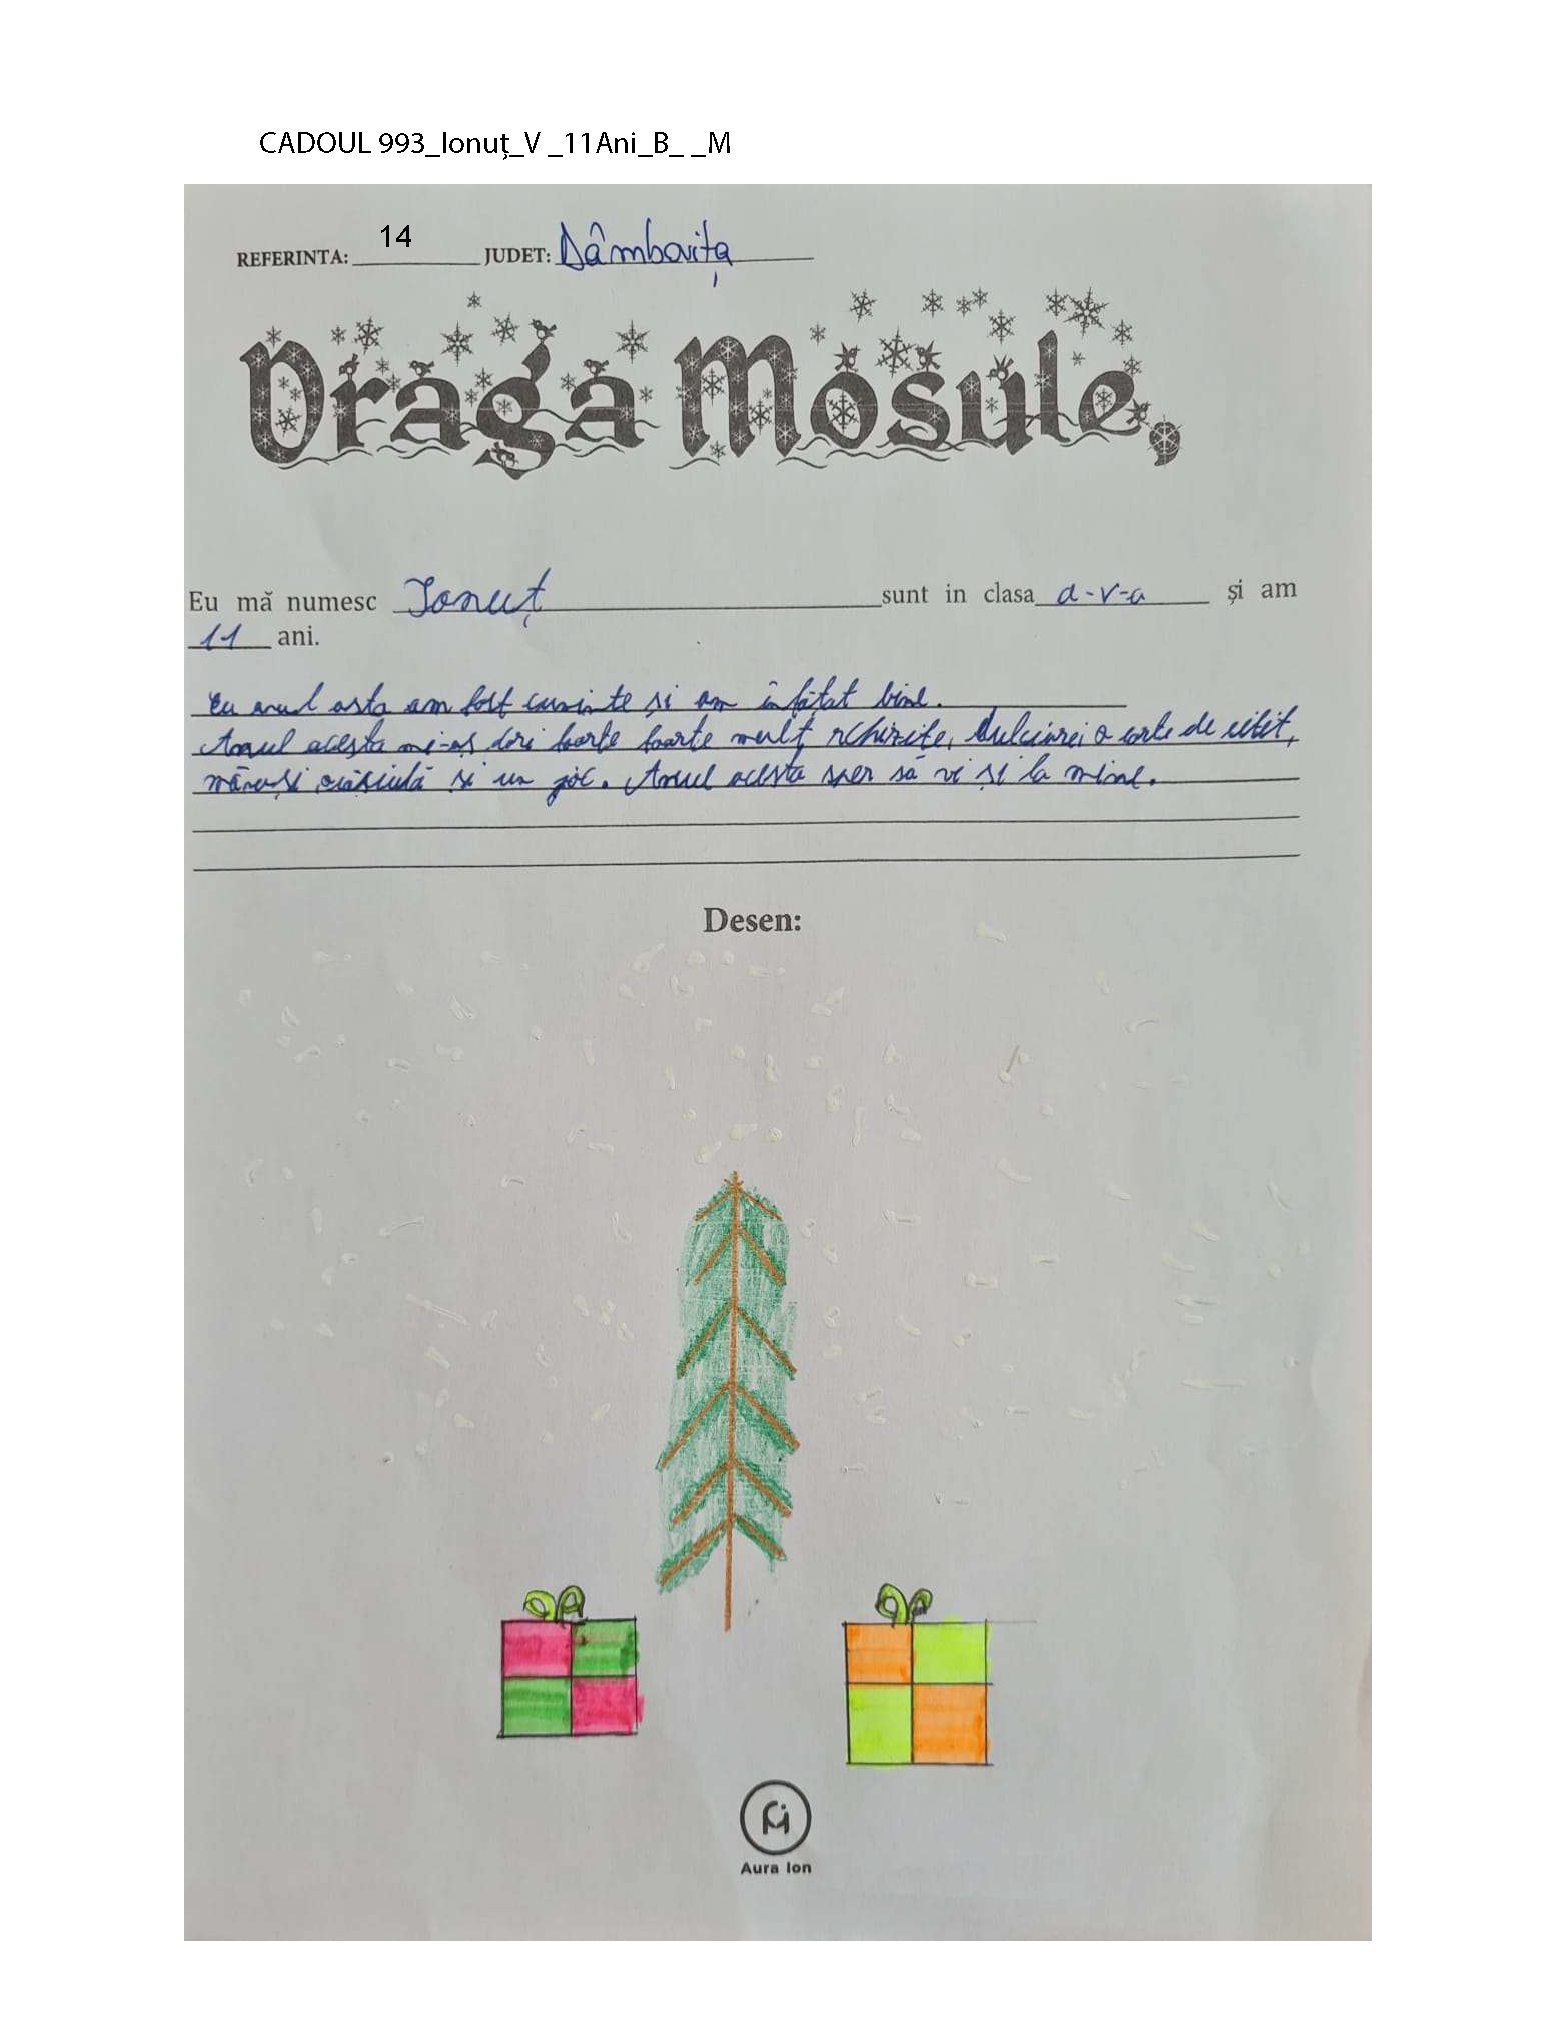 CADOUL 993_Ionuț_V _11Ani_B_ _M
REFERINTA: 14 JUDET: Dâmbovița
Draga Mosule,
Eu mă numesc Ionuț sunt in clasa a-v-a și am
11 ani.
Eu anul asta am fost cuminte și am înfățat bine.
Anul acesta mi-aș dori foarte foarte mult rChizite, dulciurei o carte de citit,
mănuși căciulă și un joc. Anul acesta sper să vi și la mine.
Desen:
Aura Ion